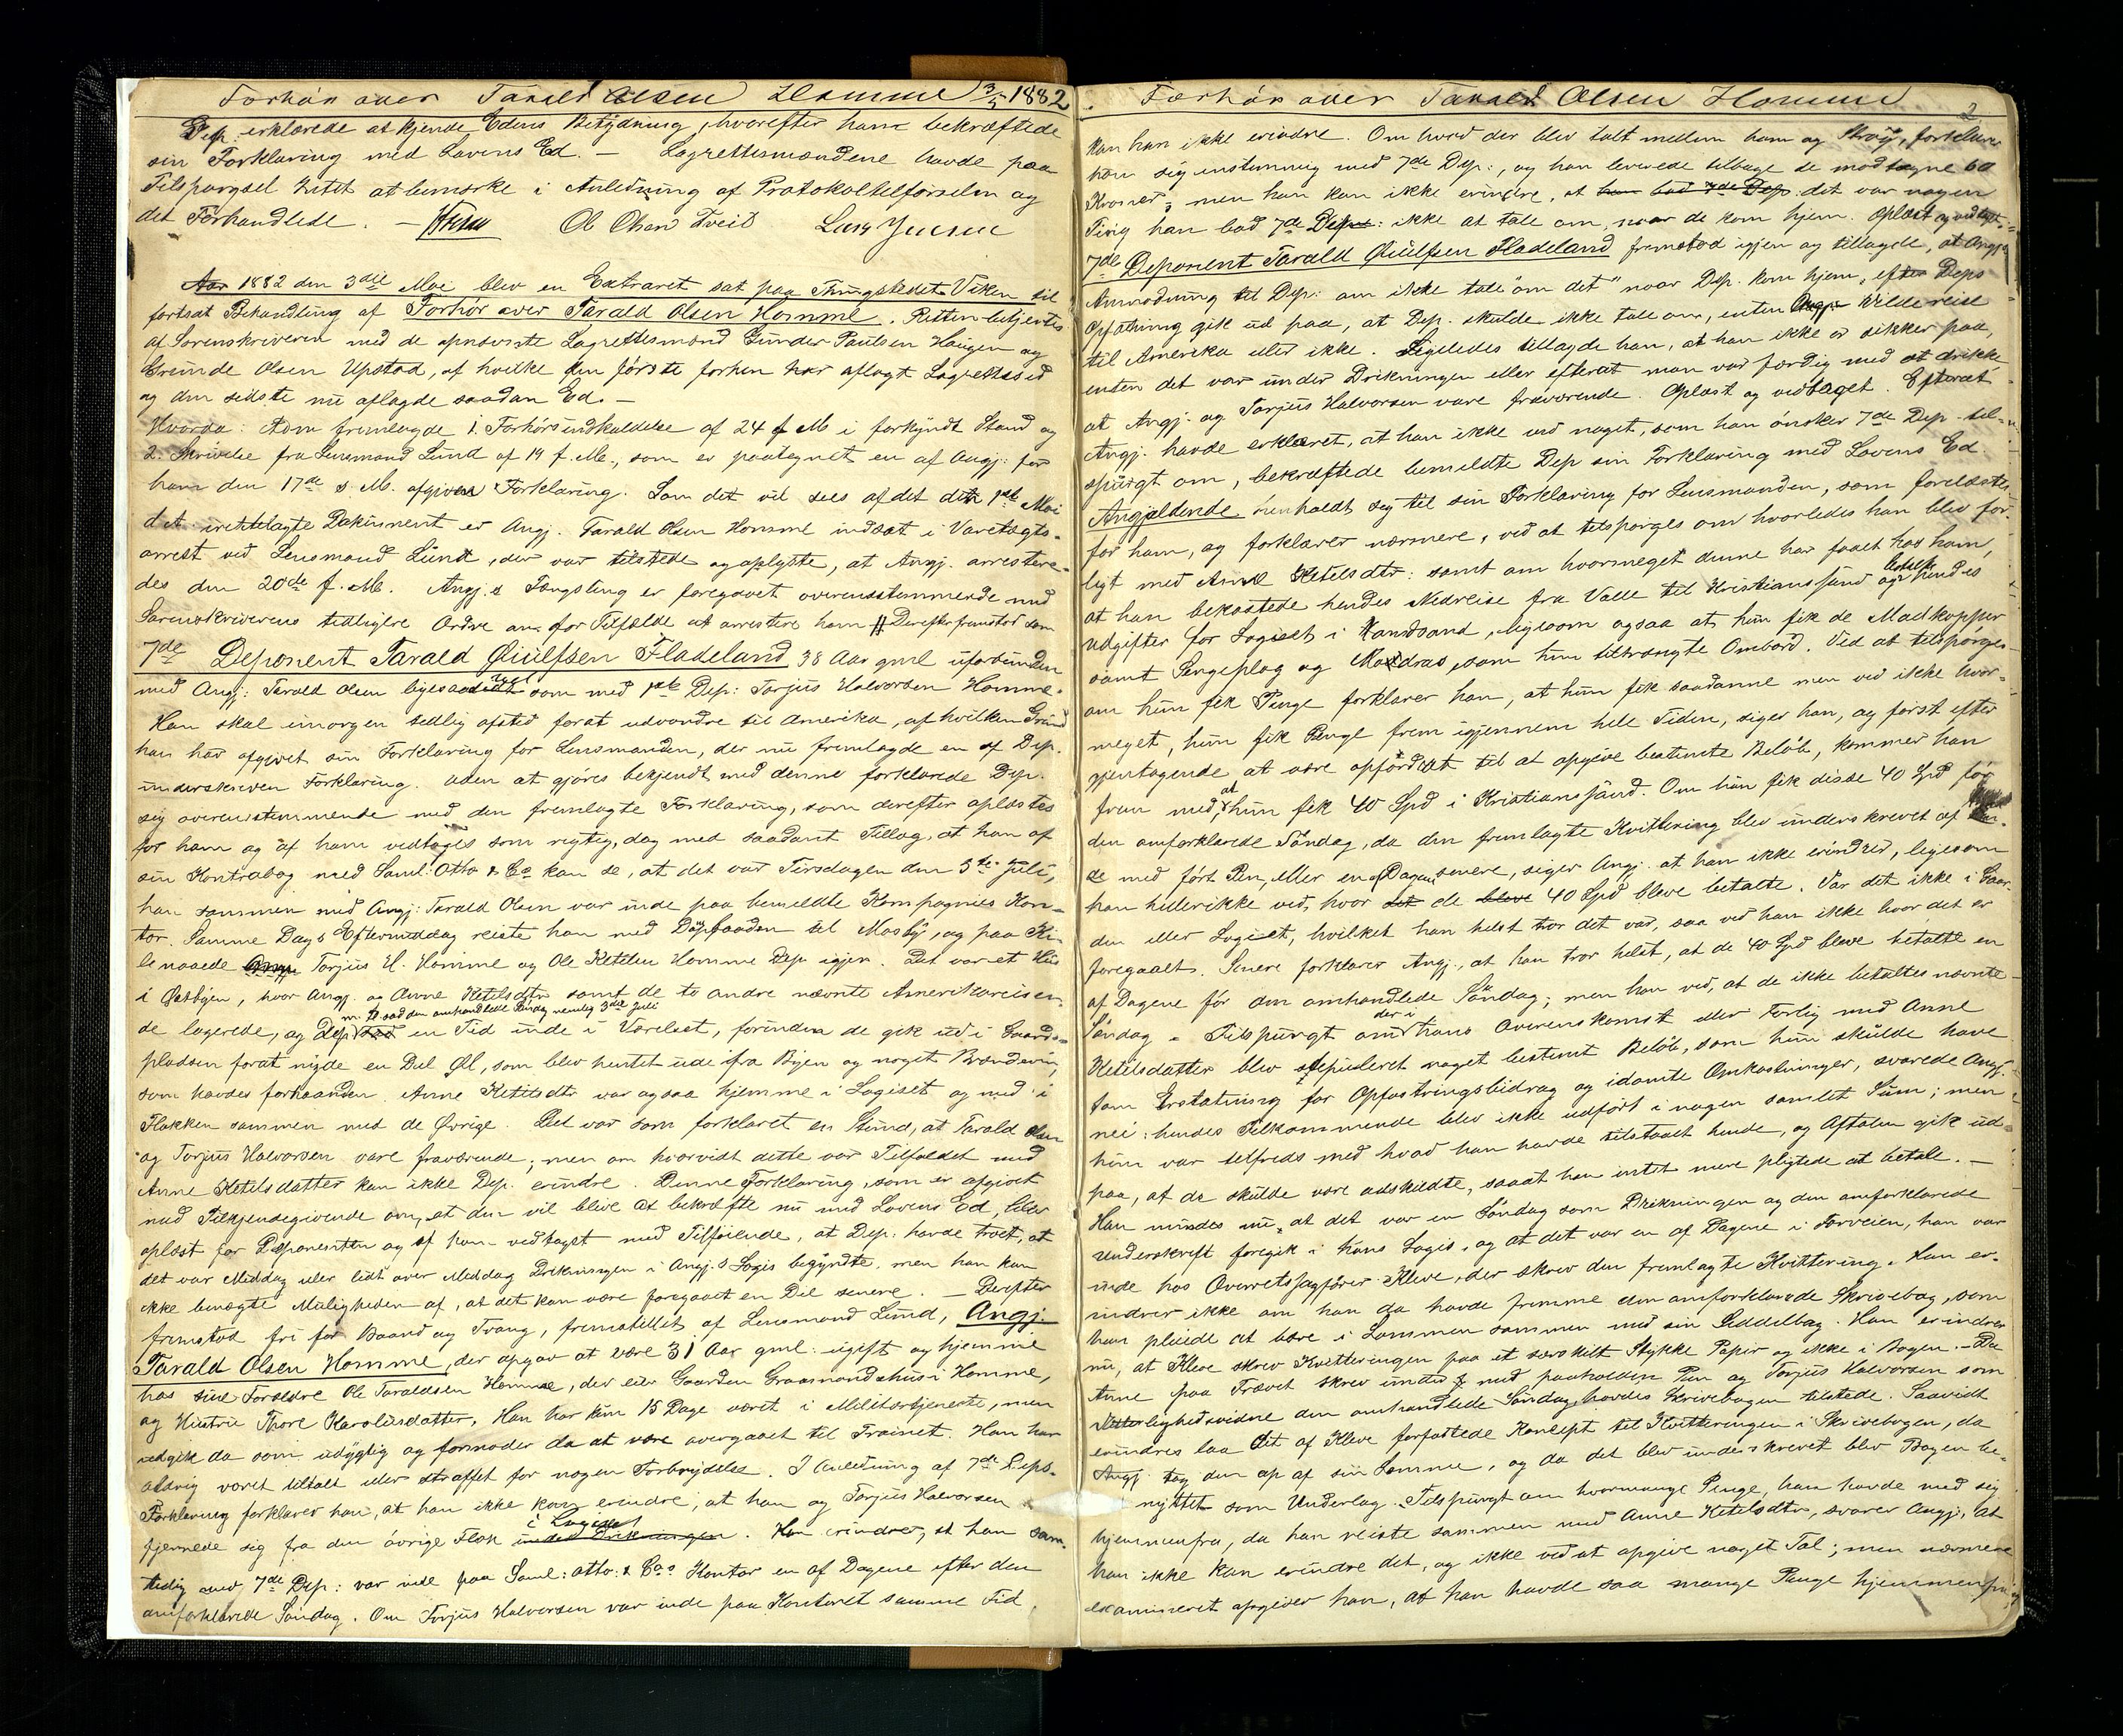 Forhør over Tarald Olsen Homme 3/5 1882
Dep. erklærede at kjende Edens Betydning, hvorefter han bekræftede
sin Forklaring med Lovens Ed. — Lagrettesmændene havde paa
Tilspørgsel Intet at bemærke i Anledning af Protokoltilførselen og
det Forhandlede. — Ol Olsen Tveid Lars
Aar 1882 den 3die Mai blev en Extraret sat paa Thingstedet Viken til
fortsat Behandling af Forhør over Tarald Olsen Homme. Retten betjentes
af Sorenskriveren med de opnævnte Lagrettesmænd Gunder Paulsen Haugen og
Greunde Olsen Upstad, af hvilke den første forhen har aflagt Lagrettesed
og den sidste nu aflagde saadan Ed. —
Hvorda: Adm fremlagde 1. Forhørsindkaldelse af 24 f M i forkyndt Stand og
2. Skrivelse fra Lensmand Lund af 19 f. M., som er paategnet en af Angj. for
ham den 17de s. M. afgiven Forklaring. Som det vil sees af det den 1ste Mai
d. A. irettelagte Dokument er Angj. Tarald Olsen Homme indsat i Varetægts-
arrest ved Lensmand Lund, der var tilstede og oplyste, at Angj. arrestere-
des den 20de f. M. Angj.s Fængsling er foregaaet overensstemmende med
Sorenskriverens tidligere Ordre om for Tilfælde at arrestere ham # Derefter fremstod som
7de Deponent Tarald Øiulfsen Fladeland 38 Aar gml uforbunden
med Angj: Tarald Olsen ligesaavel som med 1ste Dep: Torjus Halvorsen Homme.
Han skal imorgen tidlig afsted forat udvandre til Amerika, af hvilken Grund
han har afgivet sin Forklaring for Lensmanden, der nu fremlagde en af Dep.
underskreven Forklaring. Uden at gjøres bekjendt med denne forklarede Dep.
sig overensstemmende med den fremlagte Forklaring, som derefter oplæstes
for ham og af ham vedtoges som rigtig, dog med saadant Tillæg, at han af
sin Kontrabog med Saml: Otto & Co kan se, at det var Tirsdagen den 5te Juli,
han sammen med Angj: Tarald Olsen var inde paa bemeldte Kompagnies Kon-
tor. Samme Dags Eftermiddag reiste han med Dampbaaden til Mosby, og paa Ki-
le naaede Torjus H. Homme og Ole Ketilsen Homme Dep igjen. Det var et Hus
i Østbyen, hvor Angj. og Anne Ketilsdtr samt de to andre nævnte Amerikareisen-
de logerede, og Dep m. fl. sad den omhandlede Søndag nemlig 3die Juli en Tid inde i Værelset, forinden de gik ud i Gaards-
pladsen forat nyde en Del Øl, som blev hentet ude fra Byen og noget Brændevin,
som havdes forhaanden. Anne Ketilsdtr var ogsaa hjemme i Logiset og med i
Flokken sammen med de Øvrige. Det var som forklaret en Stund, at Tarald Olsen
og Torjus Halvorsen vare fraværende; men om hvorvidt dette var Tilfældet med
Anne Ketilsdatter kan ikke Dep. erindre. Denne Forklaring, som er afgivet
med Tilkjendegivende om, at den vil blive at bekræfte nu med Lovens Ed, blev
oplæst for Deponenten og af ham vedtaget med Tilføiende, at Dep. havde troet, at
det var Middag eller lidt over Middag Drikningen i Angj.s Logis begyndte, men han kan
ikke benægte Muligheden af, at det kan være foregaaet en Del senere. — Derefter
fremstod fri for Baand og Tvang, fremstillet af Lensmand Lund, Angj.
Tarald Olsen Homme, der opgav at være 31 Aar gml: ugift og hjemme
hos sine Forældre Ole Taraldsen Homme, der eier Gaarden i Homme,
og Hustru Thore. Han har kun 15 Dage været i Militærtjeneste, men
udgik da som udygtig og formoder da at være overgaaet til Trainet. Han har
aldrig været tiltalt eller straffet for nogen Forbrydelse. I Anledning af 7de Deps.
Forklaring forklarer han, at han ikke kan erindre, at han og Torjus Halvorsen
fjernede sig fra den øvrige Flok i Logiset under Drikningen. Han erindrer, at han sam-
tidig med 7de Dep: var inde paa Saml: Otto & Co.s Kontor en af Dagene efter den
omforklarede Søndag. Om Torjus Halvorsen var inde paa Kontoret samme Tid
Forhør over Tarald Olsen Homme
2
kan han ikke erindre. Om hvad der blev talt mellem ham og forklarer
han sig enstemmig med 7de Dep:, og han leverede tilbage de modtagne 60
Kroner; men han kan ikke erindre, at det var nogen
Ting han bad 7de Dep: ikke at tale om, naar de kom hjem. Oplæst og vedtaget.
7de Deponent Tarald Øiulfsen Fladeland fremstod igjen og tillagde, at Angj.
Anmodning til Dep: om ikke tale "om det" naar Dep. kom hjem, efter Deps
Opfatning gik ud paa, at Dep. skulde ikke tale om, enten Angj. vilde reise
til Amerika eller ikke. Ligeledes tillagde han, at han ikke er sikker paa,
enten det var under Drikningen eller efterat man var færdig med at drikke
at Angj. og Torjus Halvorsen vare fraværende. Oplæst og vedtaget. Efterat
Angj. havde erklæret, at han ikke ved noget, som han ønsker 7de Dep. til-
spurgt om, bekræftede bemeldte Dep sin Forklaring med Lovens Ed.
Angjældende henholdt sig til sin Forklaring for Lensmanden, som forelæstes
for ham, og forklarer nærmere, ved at tilspørges om hvorledes han blev for-
ligt med Anne Ketilsdtr: samt om hvormeget denne har faaet hos ham,
at han bekostede hendes Nedreise fra Valle til Kristianssand og betalte hendes
Udgifter for Logiset i Krandsand, ligesom ogsaa at hun fik de Madkopper
samt Sengeplag og Madras, som hun tiltrængte Ombord. Ved at tilspørges
om hun fik Penge forklarer han, at hun fik saadanne men ved ikke hvor-
meget, hun fik Penge frem igjennem hele Tiden, siger han, og først efter
gjentagende at være opfordret til at opgive bestemte Beløb, kommer han
frem med, at hun fik 40 Spd i Kristianssand. Om hun fik disse 40 Spd før
den omforklarede Søndag, da den fremlagte Kvittering blev underskrevet af hen-
de med ført Pen, eller en af Dagene senere, siger Angj. at han ikke erindrer, ligesom
han heller ikke ved, hvor de 40 Spd bleve betalte. Var det ikke i Gaar-
den eller Logiset, hvilket han helst tror det var, saa ved han ikke hvor det er
foregaaet. Senere forklarer Angj., at han tror helst, at de 40 Spd bleve betalte en
af Dagene før den omhandlede Søndag; men han ved, at de ikke betaltes nævnte
Søndag. Tilspurgt om der i hans Overenskomst eller Forlig med Anne
Ketilsdatter blev stipuleret noget bestemt Beløb, som hun skulde have
som Erstatning for Opfostringsbidrag og idømte Omkostninger, svarede Angj.
nei: hendes Tilkommende blev ikke udført i nogen samlet Sum; men
hun var tilfreds med hvad han havde tilstaaet hende, og Aftalen gik ud
paa, at de skulde være adskildte, saaat han intet mere pligtede at betale. —
Han mindes nu, at det var en Søndag som Drikningen og den omforklarede
Underskrift foregik i hans Logis, og at det var en af Dagene i Forveien, han var
inde hos Overretssagfører Kleve, der skrev den fremlagte Kvittering. Han er-
indrer ikke om han da havde fremme den omforklarede Skrivebog, som
han pleiede at bære i Lommen sammen med sin Seddelbog. Han erindrer
nu, at Kleve skrev Kvitteringen paa et særskilt Stykke Papir og ikke i Bogen. — Da
Anne paa Trævet skrev under med paaholden Pen og Torjus Halvorsen som
Vitterlighedsvidne den omhandlede Søndag, havdes Skrivebogen tilstede. Saavidt
erindres laa det af Kleve forfattede Koncept til Kvitteringen i Skrivebogen, da
Angj. tog den op af sin Lomme, og da det blev underskrevet blev Bogen be-
nyttet som Underlag. Tilspurgt om hvormange Penge, han havde med sig
hjemmenfra, da han reiste sammen med Anne Ketilsdtr, svarer Angj., at
han ikke kan erindre det, og ikke ved at opgive noget Tal; men nærmere
examineret opgiver han, at han havde saa mange Penge hjemmenfra,